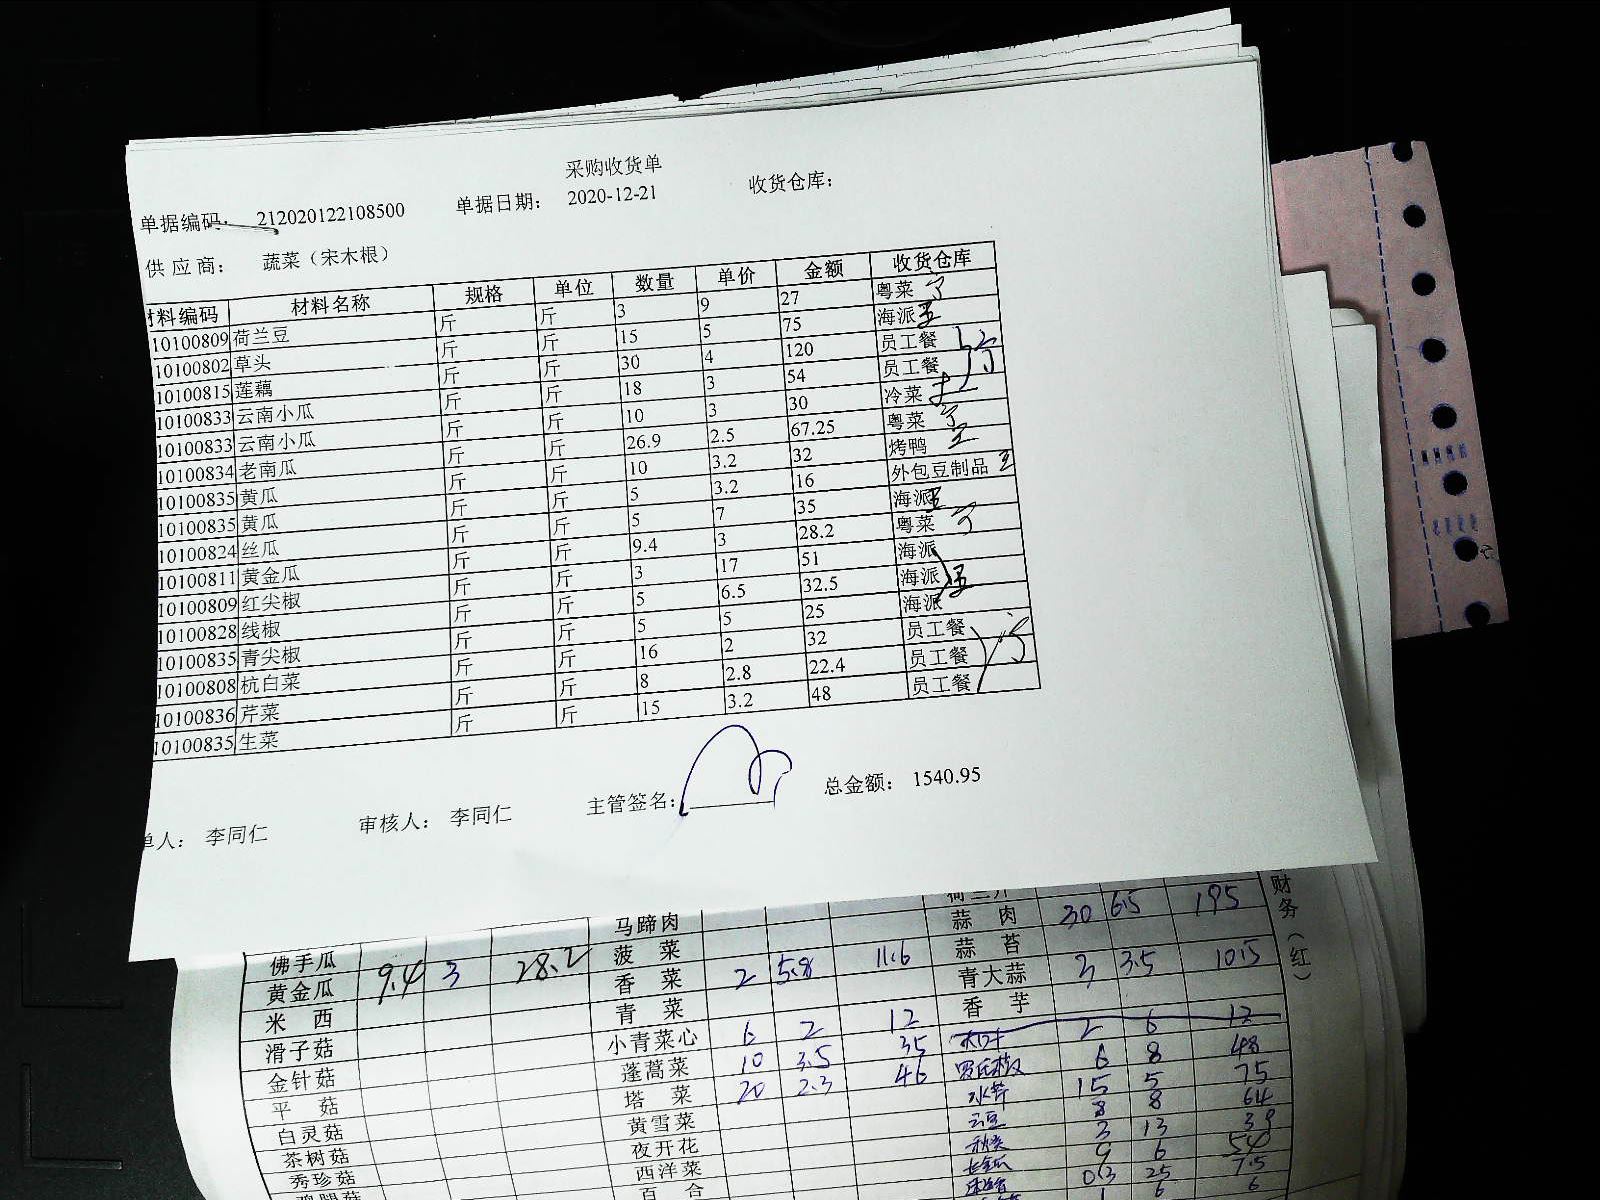 采购收货单
单据编码: 212020122108500 单据日期: 2020-12-21 收货仓库:
供应商: 蔬菜（宋木根）
材料编码 材料名称 规格 单位 数量 单价 金额 收货仓库
10100809 荷兰豆 斤 斤 3 9 27 粤菜
10100802 草头 斤 斤 15 5 75 海派
10100815 莲藕 斤 斤 30 4 120 员工餐
10100833 云南小瓜 斤 斤 18 3 54 员工餐
10100833 云南小瓜 斤 斤 10 3 30 冷菜
10100834 老南瓜 斤 斤 26.9 2.5 67.25 粤菜
10100835 黄瓜 斤 斤 10 3.2 32 烤鸭
10100835 黄瓜 斤 斤 5 3.2 16 外包豆制品
10100824 丝瓜 斤 斤 5 7 35 海派
10100811 黄金瓜 斤 斤 9.4 3 28.2 粤菜
10100809 红尖椒 斤 斤 3 17 51 海派
10100828 线椒 斤 斤 5 6.5 32.5 海派
10100835 青尖椒 斤 斤 5 5 25 海派
10100808 杭白菜 斤 斤 16 2 32 员工餐
10100836 芹菜 斤 斤 8 2.8 22.4 员工餐
10100835 生菜 斤 斤 15 3.2 48 员工餐
单人: 李同仁 审核人: 李同仁 主管签名: 总金额: 1540.95
马蹄肉 蒜肉 30 6.5 195
佛手瓜 菠菜 蒜苔
黄金瓜 9.4 3 28.2 香菜 2 5.8 11.6 青大蒜 3 3.5 10.5
米西 青菜 香芋
滑子菇 小青菜心 6 2 12 2 6 12
金针菇 蓬蒿菜 10 3.5 35 6 8 48
平菇 塔菜 20 2.3 46 水芹 15 5 75
白灵菇 黄雪菜 云豆 8 8 64
茶树菇 夜开花 3 13 39
秀珍菇 西洋菜 9 6 54
百合 0.3 25 7.5
1 6 6
财务（红）